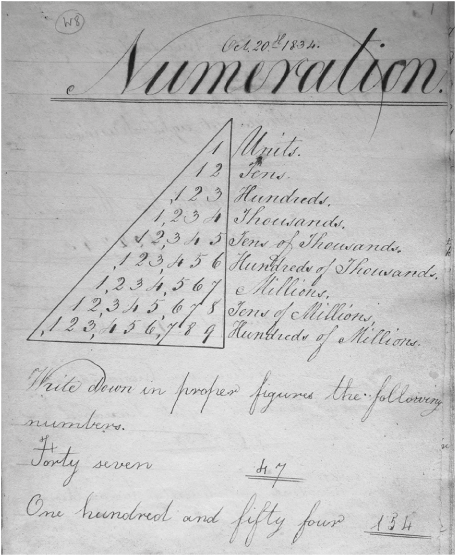 W8
Oct. 20th 1834.
Numeration.
1 Units.
1 2 Tens.
1 2 3 Hundreds.
1, 2 3 4 Thousands.
1 2, 3 4 5 Tens of Thousands.
1 2 3, 4 5 6 Hundreds of Thousands.
1, 2 3 4, 5 6 7 Millions.
1 2, 3 4 5, 6 7 8 Tens of Millions,
1 2 3, 4 5 6, 7 8 9 Hundreds of Millions.
Write down in proper figures the following
numbers.
Forty seven 47
One hundred and fifty four 154